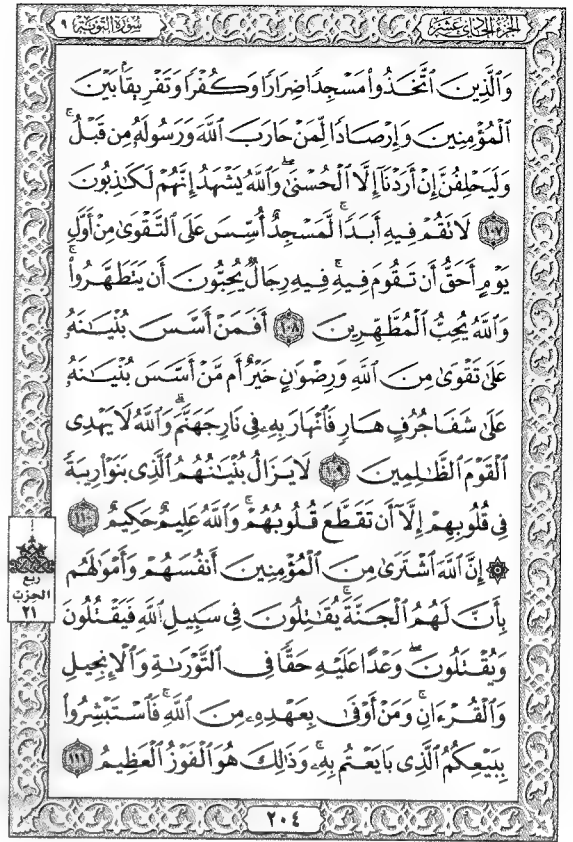 الجزء الحادي عشر
سورة التوبة ٩
وَالَّذِينَ اتَّخَذُوا مَسْجِدًا ضِرَارًا وَكُفْرًا وَتَفْرِيقًا بَيْنَ
الْمُؤْمِنِينَ وَإِرْصَادًا لِّمَنْ حَارَبَ اللَّهَ وَرَسُولَهُ مِن قَبْلُ ۚ
وَلَيَحْلِفُنَّ إِنْ أَرَدْنَا إِلَّا الْحُسْنَىٰ ۖ وَاللَّهُ يَشْهَدُ إِنَّهُمْ لَكَاذِبُونَ
١٠٧ لَا تَقُمْ فِيهِ أَبَدًا ۚ لَّمَسْجِدٌ أُسِّسَ عَلَى التَّقْوَىٰ مِنْ أَوَّلِ
يَوْمٍ أَحَقُّ أَن تَقُومَ فِيهِ ۚ فِيهِ رِجَالٌ يُحِبُّونَ أَن يَتَطَهَّرُوا ۚ
وَاللَّهُ يُحِبُّ الْمُطَّهِّرِينَ ١٠٨ أَفَمَنْ أَسَّسَ بُنْيَـٰنَهُ
عَلَىٰ تَقْوَىٰ مِنَ اللَّهِ وَرِضْوَانٍ خَيْرٌ أَم مَّنْ أَسَّسَ بُنْيَـٰنَهُ
عَلَىٰ شَفَا جُرُفٍ هَارٍ فَانْهَارَ بِهِ فِي نَارِ جَهَنَّمَ ۗ وَاللَّهُ لَا يَهْدِي
الْقَوْمَ الظَّـٰلِمِينَ ١٠٩ لَا يَزَالُ بُنْيَـٰنُهُمُ الَّذِي بَنَوْا رِيبَةً
فِي قُلُوبِهِمْ إِلَّا أَن تَقَطَّعَ قُلُوبُهُمْ ۗ وَاللَّهُ عَلِيمٌ حَكِيمٌ ١١٠
۞ إِنَّ اللَّهَ اشْتَرَىٰ مِنَ الْمُؤْمِنِينَ أَنفُسَهُمْ وَأَمْوَٰلَهُم
بِأَنَّ لَهُمُ الْجَنَّةَ ۚ يُقَـٰتِلُونَ فِي سَبِيلِ اللَّهِ فَيَقْتُلُونَ
وَيُقْتَلُونَ ۖ وَعْدًا عَلَيْهِ حَقًّا فِي التَّوْرَىٰةِ وَالْإِنجِيلِ
وَالْقُرْءَانِ ۚ وَمَنْ أَوْفَىٰ بِعَهْدِهِ مِنَ اللَّهِ ۚ فَاسْتَبْشِرُوا
بِبَيْعِكُمُ الَّذِي بَايَعْتُم بِهِ ۚ وَذَٰلِكَ هُوَ الْفَوْزُ الْعَظِيمُ ١١١
ربع
الحزب
٢١
٢٠٤